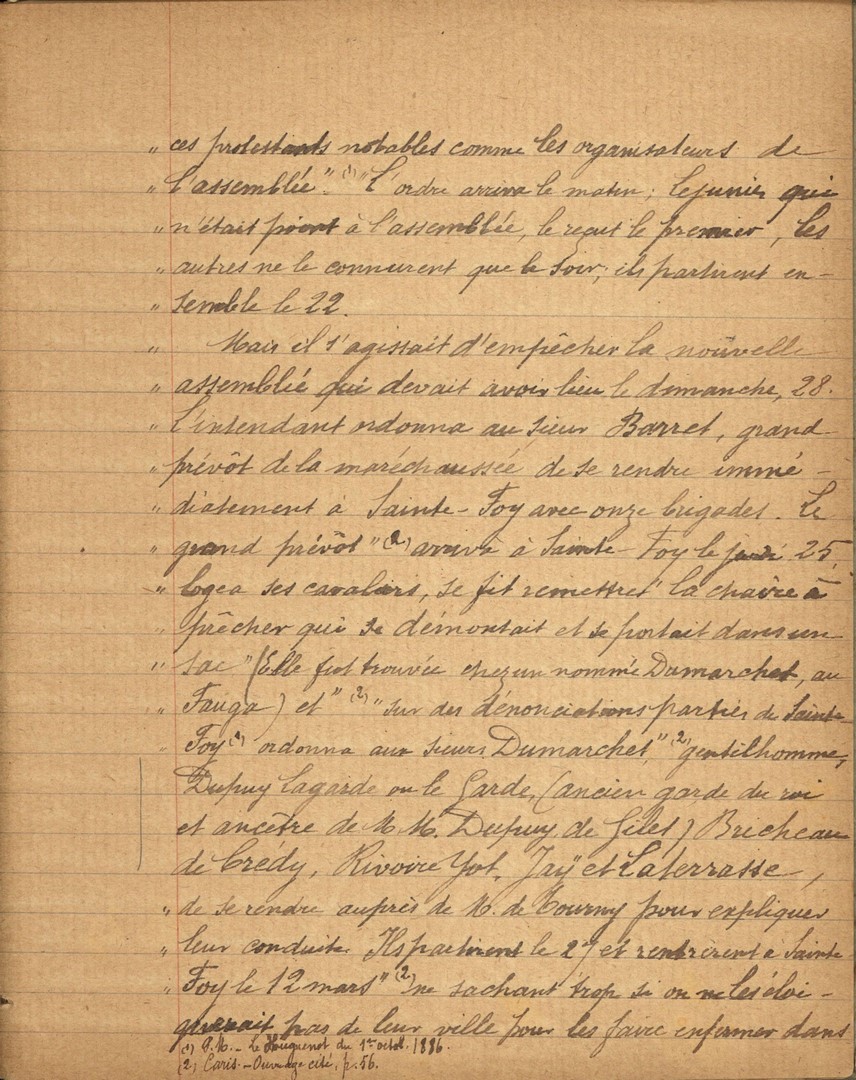 „ ces protestants notables comme les organisateurs de
„ l'assemblée". (1) "L'ordre arriva le matin; Lejunier qui
„ n'était point à l'assemblée, le reçut le premier, les
„ autres ne le connurent que le soir; ils partirent en-
„ semble le 22.
„ Mais il s'agissait d'empêcher la nouvelle
„ assemblée qui devait avoir lieu le dimanche, 28.
„ L'intendant ordonna au sieur Barret, grand-
„ prévôt de la maréchaussée de se rendre immé-
„ diatement à Sainte-Foy avec onze brigades. Le
„ grand prévôt" (2) arrivé à Sainte-Foy le jeudi 25,
„ logea ses cavaliers, se fit remettre " la chaire à
„ prêcher qui se démontait et se portait dans un
„ sac" (Elle fut trouvée chez un nommé Dumarchet, au
„ Fauga) et " (2) "sur des dénonciations parties de Sainte-
„ Foy (1) ordonna aux sieurs Dumarchet," (2) gentilhomme,
Dupuy Lagarde ou le Garde, (ancien garde du roi
et ancêtre de M.M. Dupuy de Gilet) Bricheau
de Crédy, Rivoire Yot, Jaÿ et Laterrasse,
„ de se rendre auprès de M. de Tourny pour expliquer
„ leur conduite. Ils partirent le 27 et rentrèrent à Sainte-
„ Foy le 12 mars" (2) ne sachant trop si on ne les éloi-
gnerait pas de leur ville pour les faire enfermer dans
(1) P.M. - Le Huguenot du 1er octob. 1886.
(2) Caris. - Ouvrage cité, p. 56.